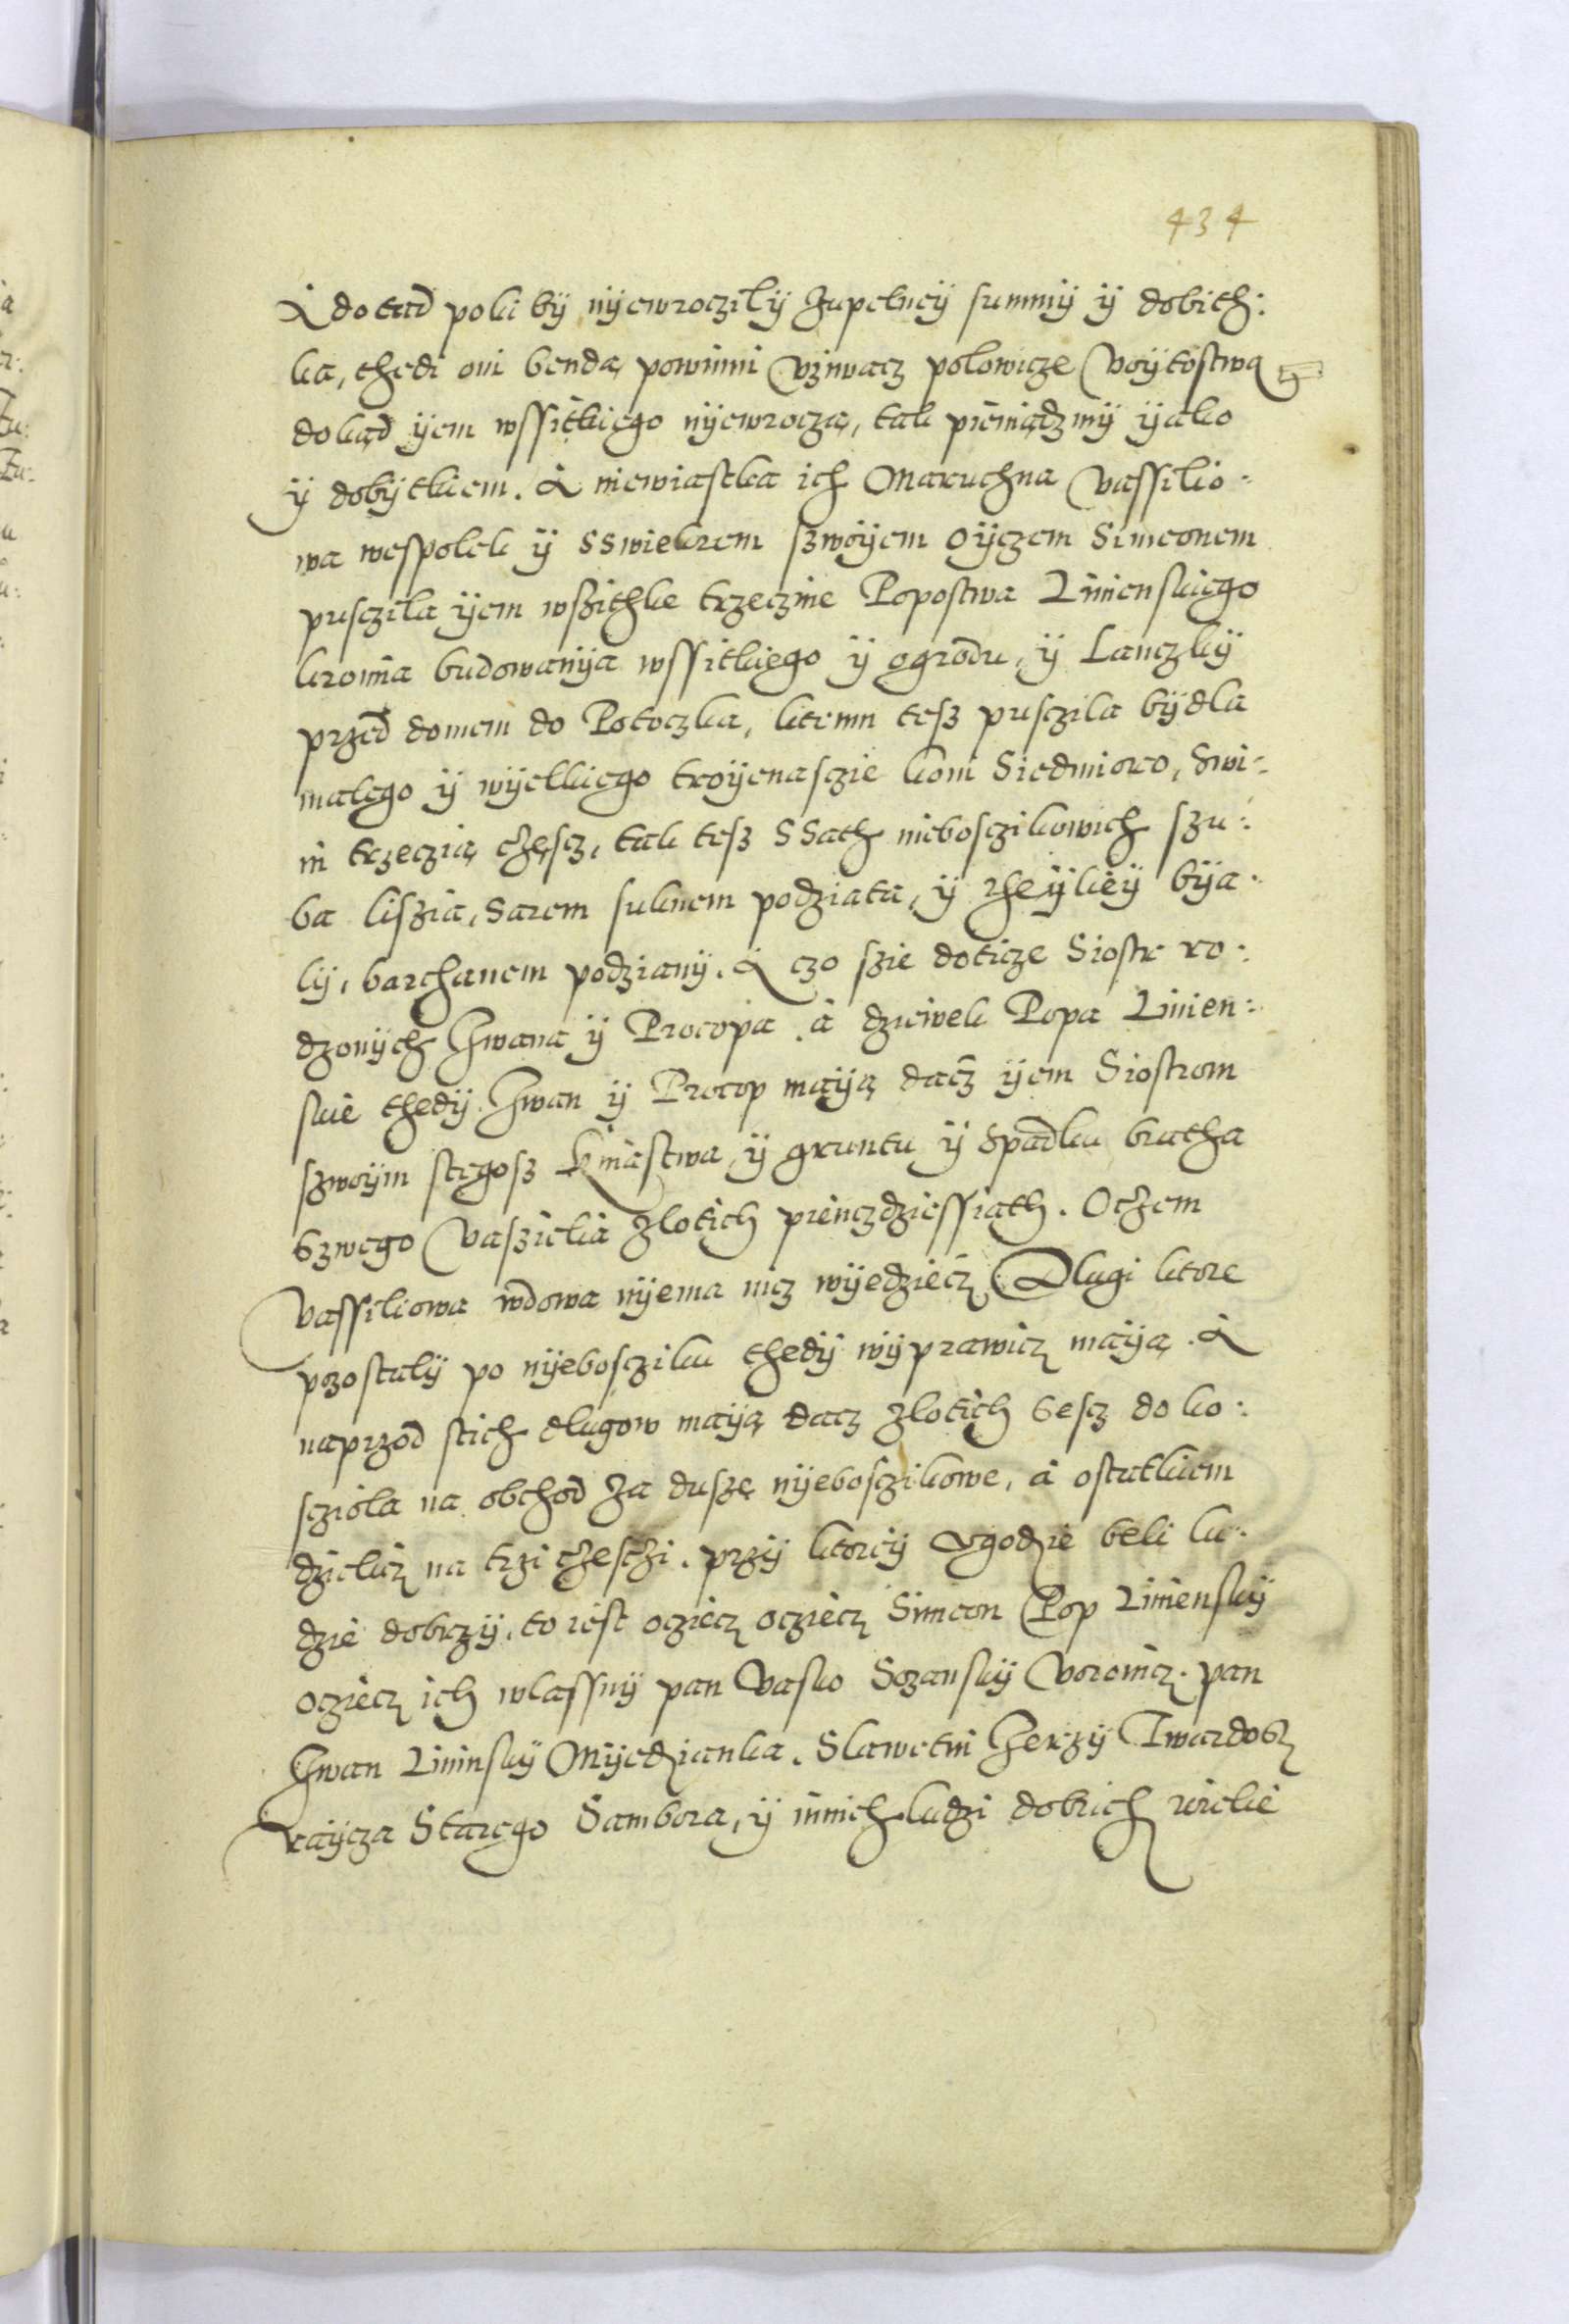 434
A dotad poki bÿ nÿewroczilÿ zupelneÿ summÿ ÿ dobith:
ka, thedi oni benda powinni vziwacz polowicze Voÿtostwa
dokąd ÿem wssitkiego nÿewroczą, tak pieniądzmÿ ÿako
ÿ dobÿtkiem. A niewiastka ich Maruchna Vassilio:
wa wespolek ÿ Sswiekrem szwoÿem oÿczem Simeonem
pusczila ÿem wszithke trzeczine Popostwa Linienskiego
kromia budowanÿa wssitkiego ÿ ogrodu, ÿ Lanczkÿ
przed domem do Potoczka, ktemu tesz pusczila bÿdla
malego ÿ wÿelkiego troÿenasczie koni Siedmioro, Swi:
ni trzeczią częsc, tak tesz SSath nieboszikowich szu:
ba liszia, Sarem suknem podziata, ÿ zheÿkieÿ bÿa:
lÿ, barchanem podzianÿ. A czo szie doticze Siostr ro:
dzonÿch Hwana ÿ Procopa. a dziewek Popa Linien:
skie thedÿ Hwan ÿ Procop maÿą dacz ÿem Siostrom
szwoÿm stegosz Kniastwa ÿ gruntu ÿ Spadku bratha
szwego Vaszielia zlotich pienczdziessiath. Oczem
Vassiliowa wdowa nÿema nicz wÿedziecz Dlugi ktore
pzostalÿ po nÿebosziku thedÿ wÿprawicz maÿą. A
naprzod stich dlugow maÿą dacz zlotich sesc do ko:
scziola na obchod za duszę nÿeboszikowe, a ostatkiem
dzielicz na trzi czesczi. przÿ ktoreÿ vgodzie beli lu:
dzie dobrzÿ. to iest ocziecz ocziecz Simeon Pop Linienskÿ
ocziecz ich wlassnÿ pan Vasko Sozanskÿ Voronicz. pan
Hwan Lininskÿ Mÿedzianka. Slawetni Herzÿ Twardosz
raÿcza Starego Sambora, ÿ innich ludzi dobrich wiele